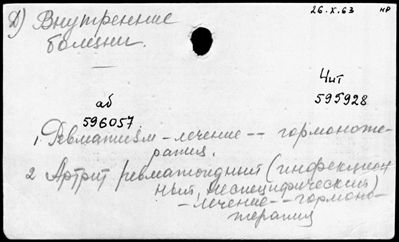 26.X.63 нр
Д) Внутренние
болезни.
Чит
595928
аб
596057
1. Ревматизм – лечение -- гормоноте-
рапия.
2 Артрит ревматоидный (инфекцион
ный, неспецифический)
– лечение -- гормоно-
терапия